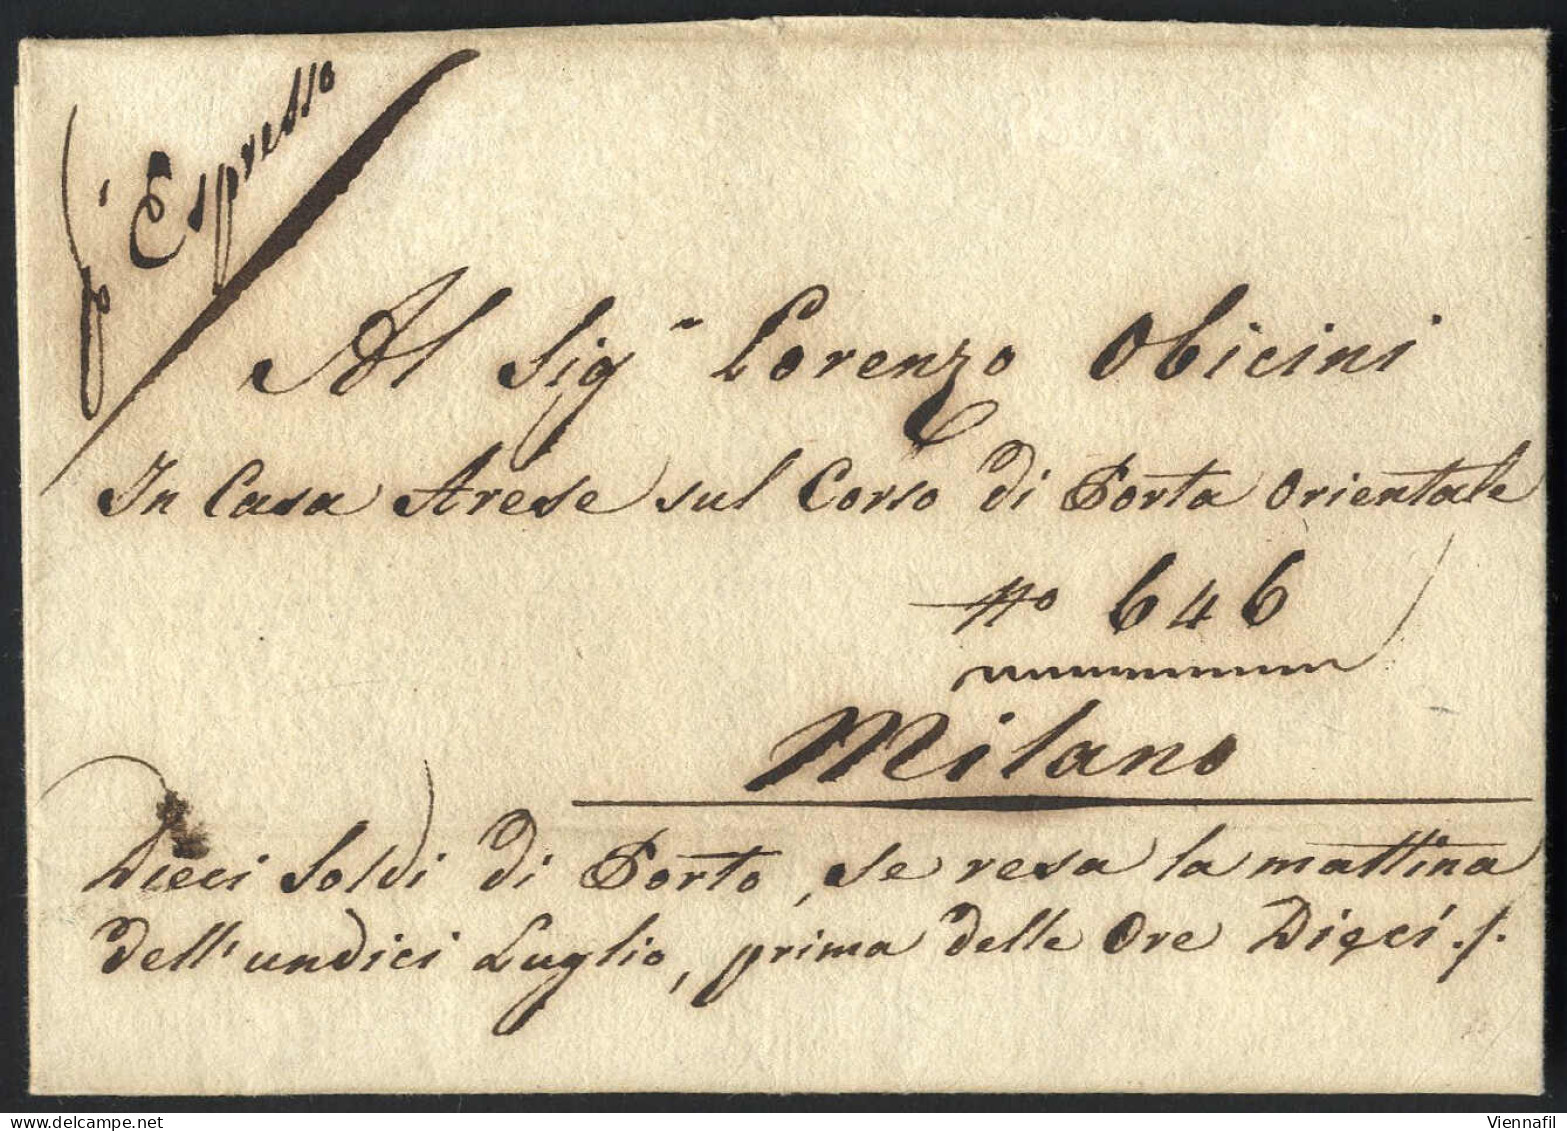 p' Espresso
Al Sigr Lorenzo Obicini
In Casa Arese sul Corso di Porta Orientale
No 646
Milano
Dieci Soldi di Porto, se resa la mattina
dell'undici Luglio, prima delle Ore Dieci./.
delcampe.net
Viennafil